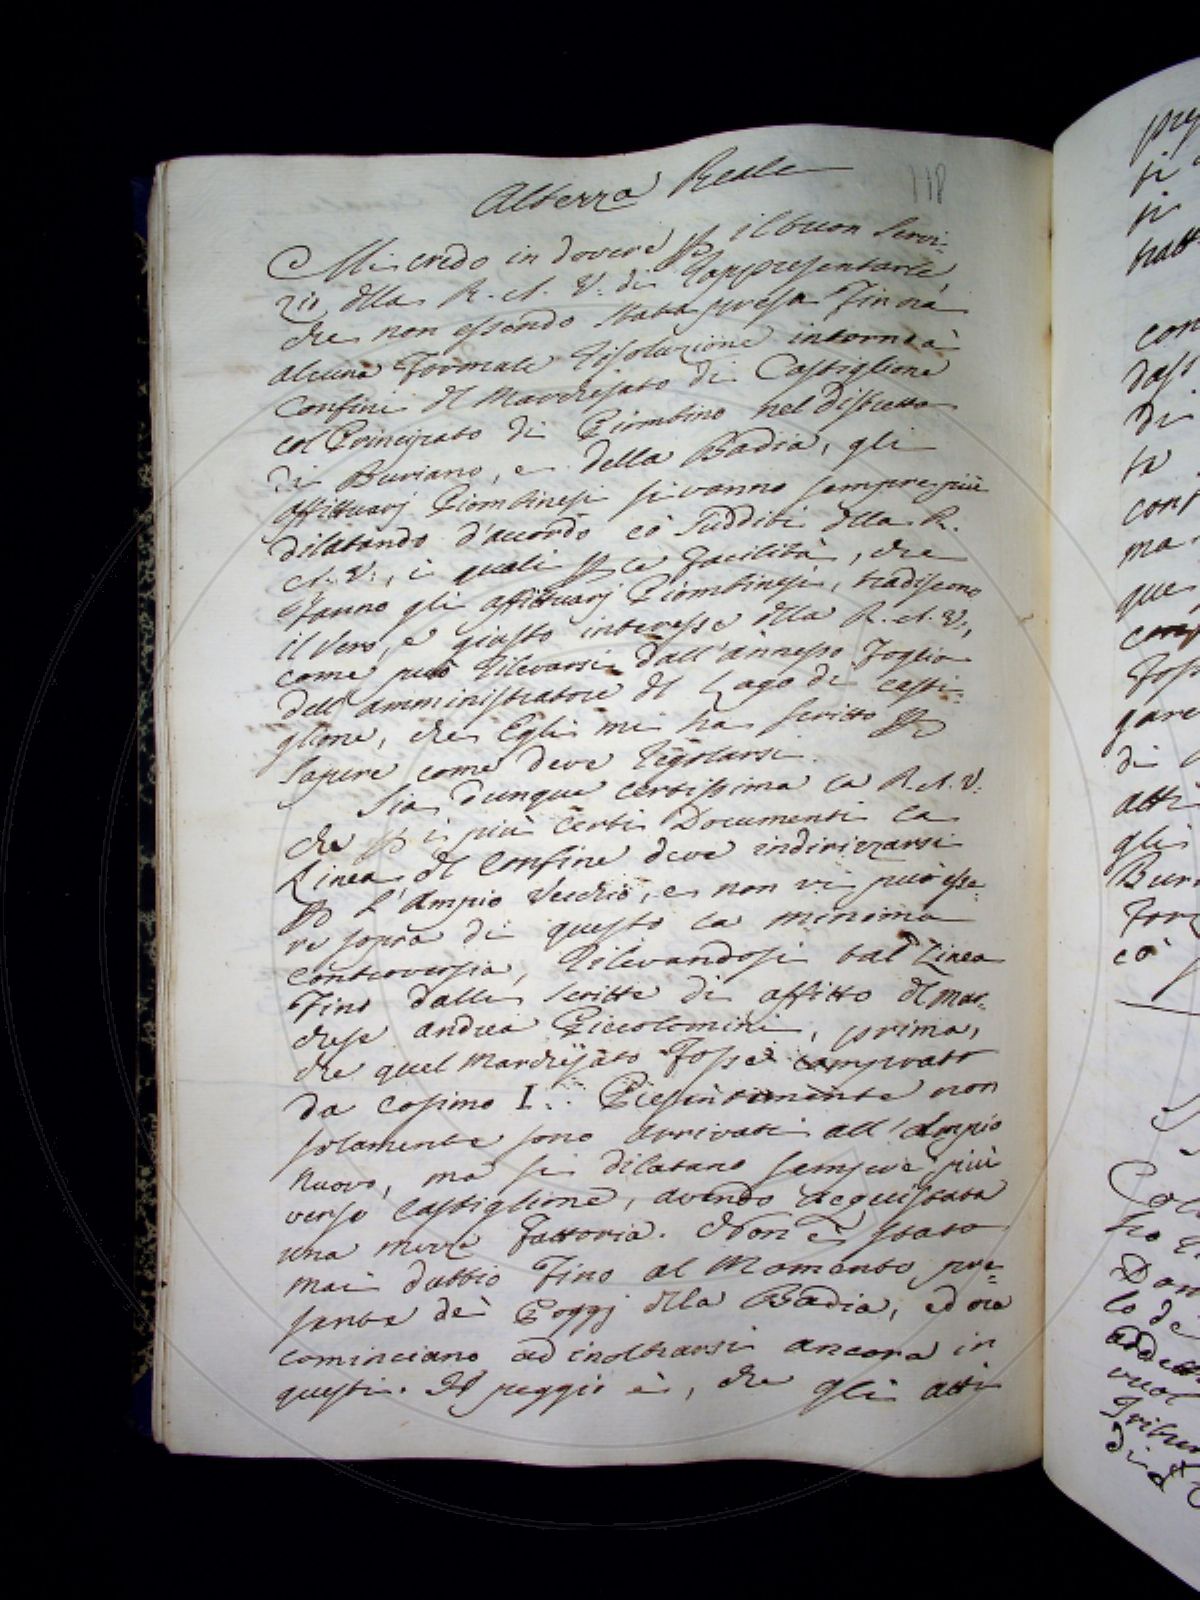 Altezza Reale
118
Mi credo in dovere p il buon servi-
zio dlla R. A. V. di rappresentarle,
che non essendo stata presa fin ora
alcuna formale risoluzione intorno a
confini dl Marchesato di Castiglione
col Principato di Piombino nel distretto
di Buriano, e della Badia, gli
affittuarj Piombinesi si vanno sempre più
dilatando d'accordo co sudditi dlla R.
A. V., i quali p le facilità, che
fanno gli affittuarj Piombinesi, tradiscono
il vero, e giusto interesse dlla R. A. V.,
come può rilevarsi dall'annesso foglio
dell'amministratore dl Lago di Casti-
glione, che Egli mi ha scritto p
sapere come deve regolarsi.
Sia dunque certissima la R. A. V.
che p i più certi Documenti la
Linea dl confine deve indirizzarsi
p l'Ampio Vecchio, e non vi può esse-
re sopra di questo la minima
controversia, rilevandosi tal Linea
fino dalle scritte di affitto dl Mar-
chese Andrea Piccolomini, prima,
che quel Marchesato fosse comprato
da Cosimo I. Presentemente non
solamente sono arrivati all'Ampio
Nuovo, ma si dilatano sempre più
verso Castiglione, avendo acquistata
una mezza fattoria. Non è stato
mai dubbio fino al Momento pre-
sente dei Poggj dlla Badia, ed ora
cominciano ad inoltrarsi ancora in
questi. Il peggio è, che gli atti